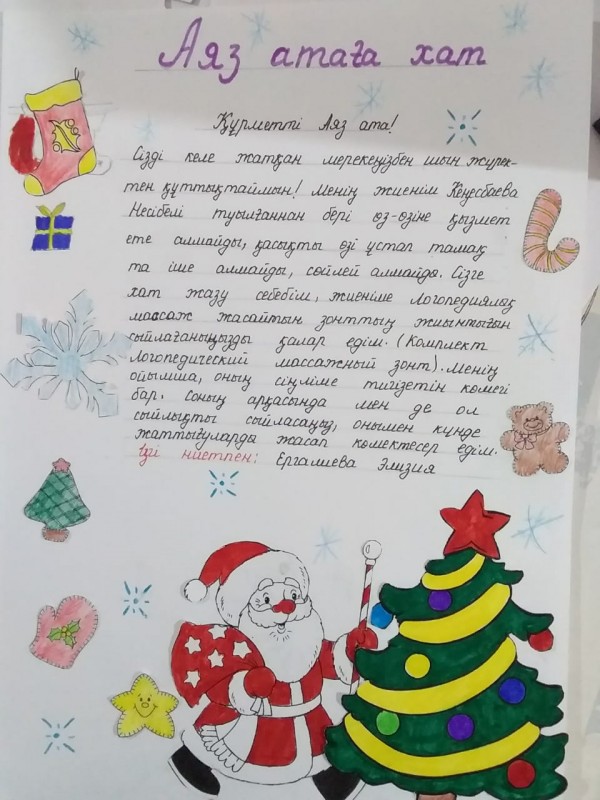 Аяз атаға хат
Құрметті Аяз ата!
Сізді келе жатқан мерекеңізбен шын жүрек-
тен құттықтаймын! Менің жиенім Кеңесбаева
Несібелі туылғаннан бері өз-өзіне қызмет
ете алмайды, қасықты өзі ұстап тамақ
та іше алмайды, сөйлей алмайда. Сізге
хат жазу себебім, жиеніме логопедиялық
массаж жасайтын зонттың жиынтығын
сыйлағаныңызды қалар едім. (Комплект
Логопедический массажный зонт). Менің
ойымша, оның сіңліме тигізетін көмегі
бар. Соның арқасында мен де ол
сыйлықты сыйласаңыз, онымен күнде
жаттығуларды жасап көмектесер едім.
Ізгі ниетпен: Ергалиева Элизия